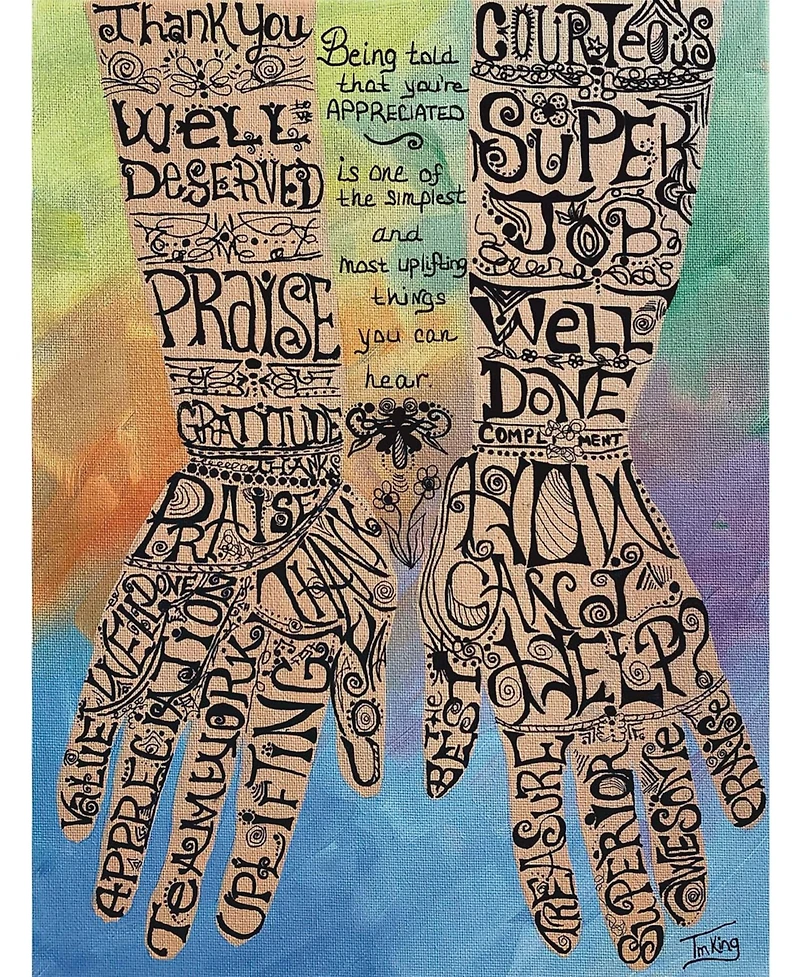 Thank you
Well
DeSERVED
PRaISE
GRATITUDE
THANKS
PRAISE
THANK
VALUE
APPRECIATION
TEAMWORK
UPLIFTING
Being told
that you're
APPRECIATED
is one of
the simplest
and
most uplifting
things
you can
hear.
COURTeOUS
SUPER
JOB
Well
DONE
COMPLIMENT
HOW
CAN I
HELP?
THE
BEST
TREASURE
SUPERIOR
AWESOME
PRAISE
TmKing